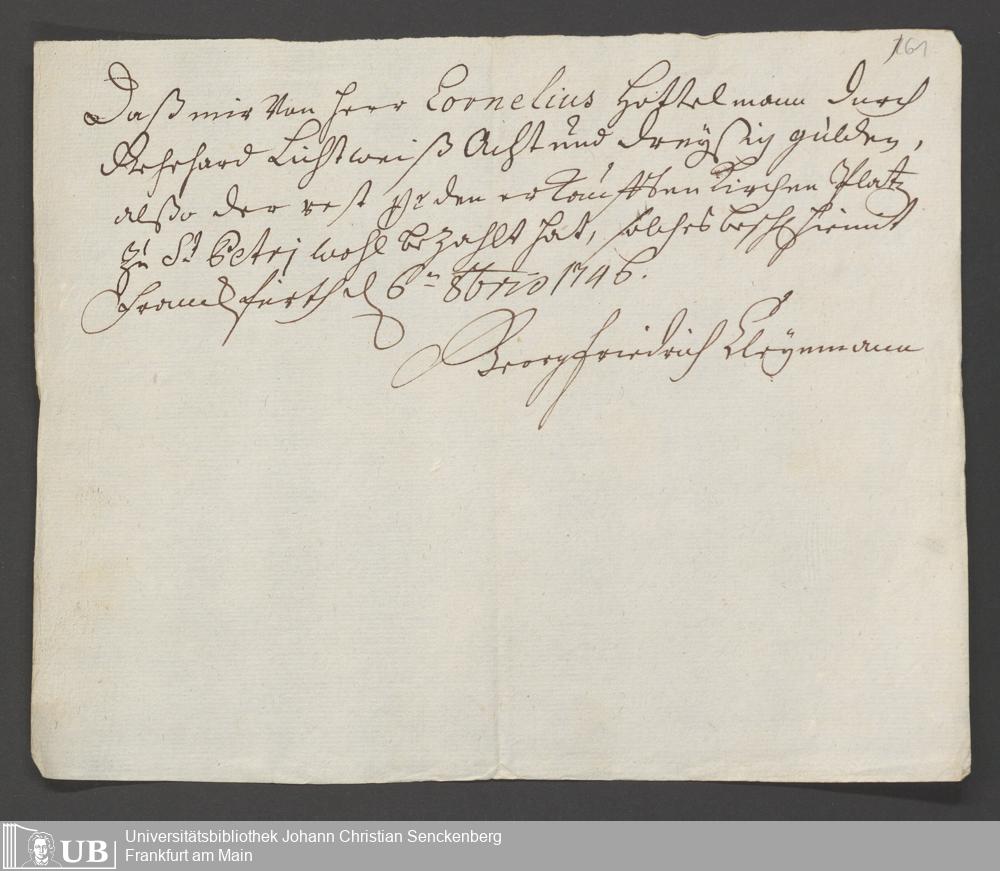 161
Daß mir Von Herr Cornelius Hoffelmann durch
Lichtweiß Acht und dreÿßig gülden,
alßo der rest pr den erkaufften Kirchen Platz
zu St Petri wohl bezahlt hat, solches besch hiemit
Franckfurth d 6ten 8brio 1746.
Georg friedrich Kleÿnmann
UB
Universitätsbibliothek Johann Christian Senckenberg
Frankfurt am Main